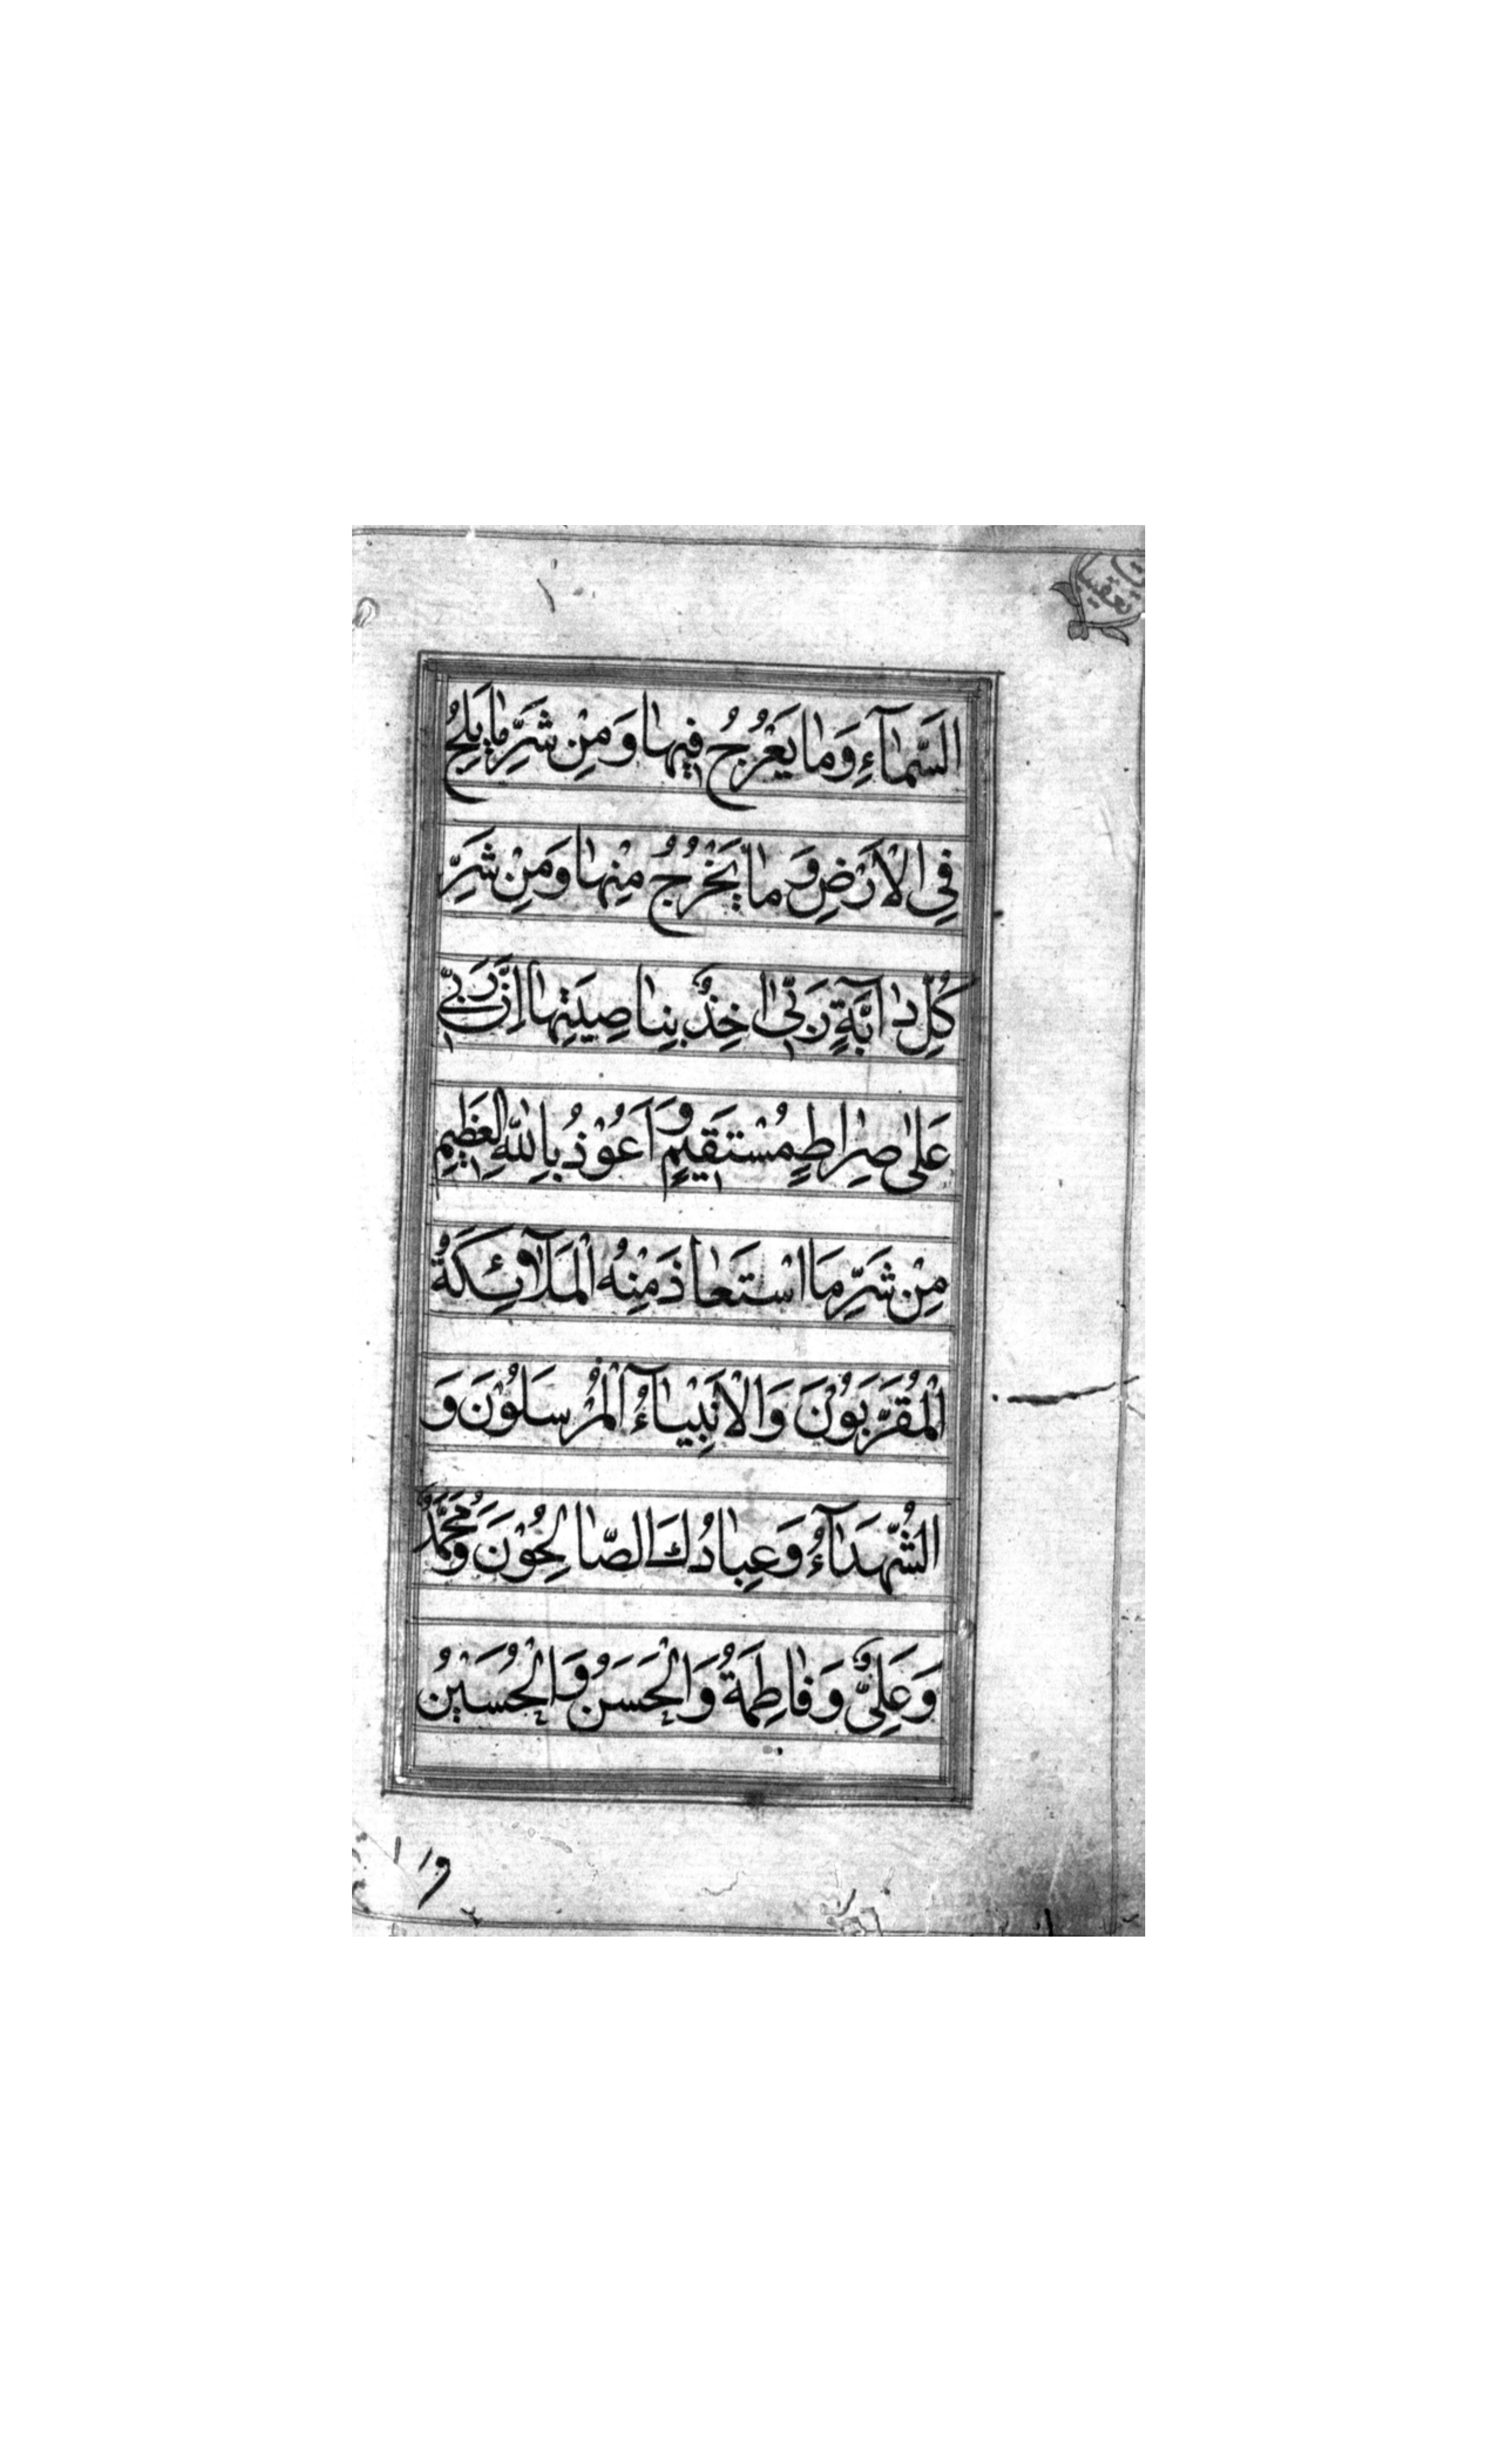 تعقیب
السَّمٰآءِ وَمٰا يَعْرُجُ فِيهٰا وَمِنْ شَرِّ مٰا يَلِجُ
فِي الْاَرْضِ وَمٰا يَخْرُجُ مِنْهٰا وَمِنْ شَرِّ
كُلِّ دٰآبَّةٍ رَبّي اٰخِذٌ بِنٰاصِيَتِهٰا اِنَّ رَبّي
عَلٰى صِرٰاطٍ مُسْتَقِيمٍ وَاَعُوْذُ بِاللّٰهِ الْعَظِيمِ
مِنْ شَرِّ مَا اسْتَعٰاذَ مِنْهُ الْمَلآئِكَةُ
الْمُقَرَّبُوْنَ وَالْاَنْبِيٰآءُ الْمُرْسَلُوْنَ وَ
الشُّهَدٰآءُ وَعِبٰادُكَ الصّٰالِحُوْنَ وَمُحَمَّدٌ
وَعَلِيٌّ وَفٰاطِمَةُ وَالْحَسَنُ وَالْحُسَيْنُ